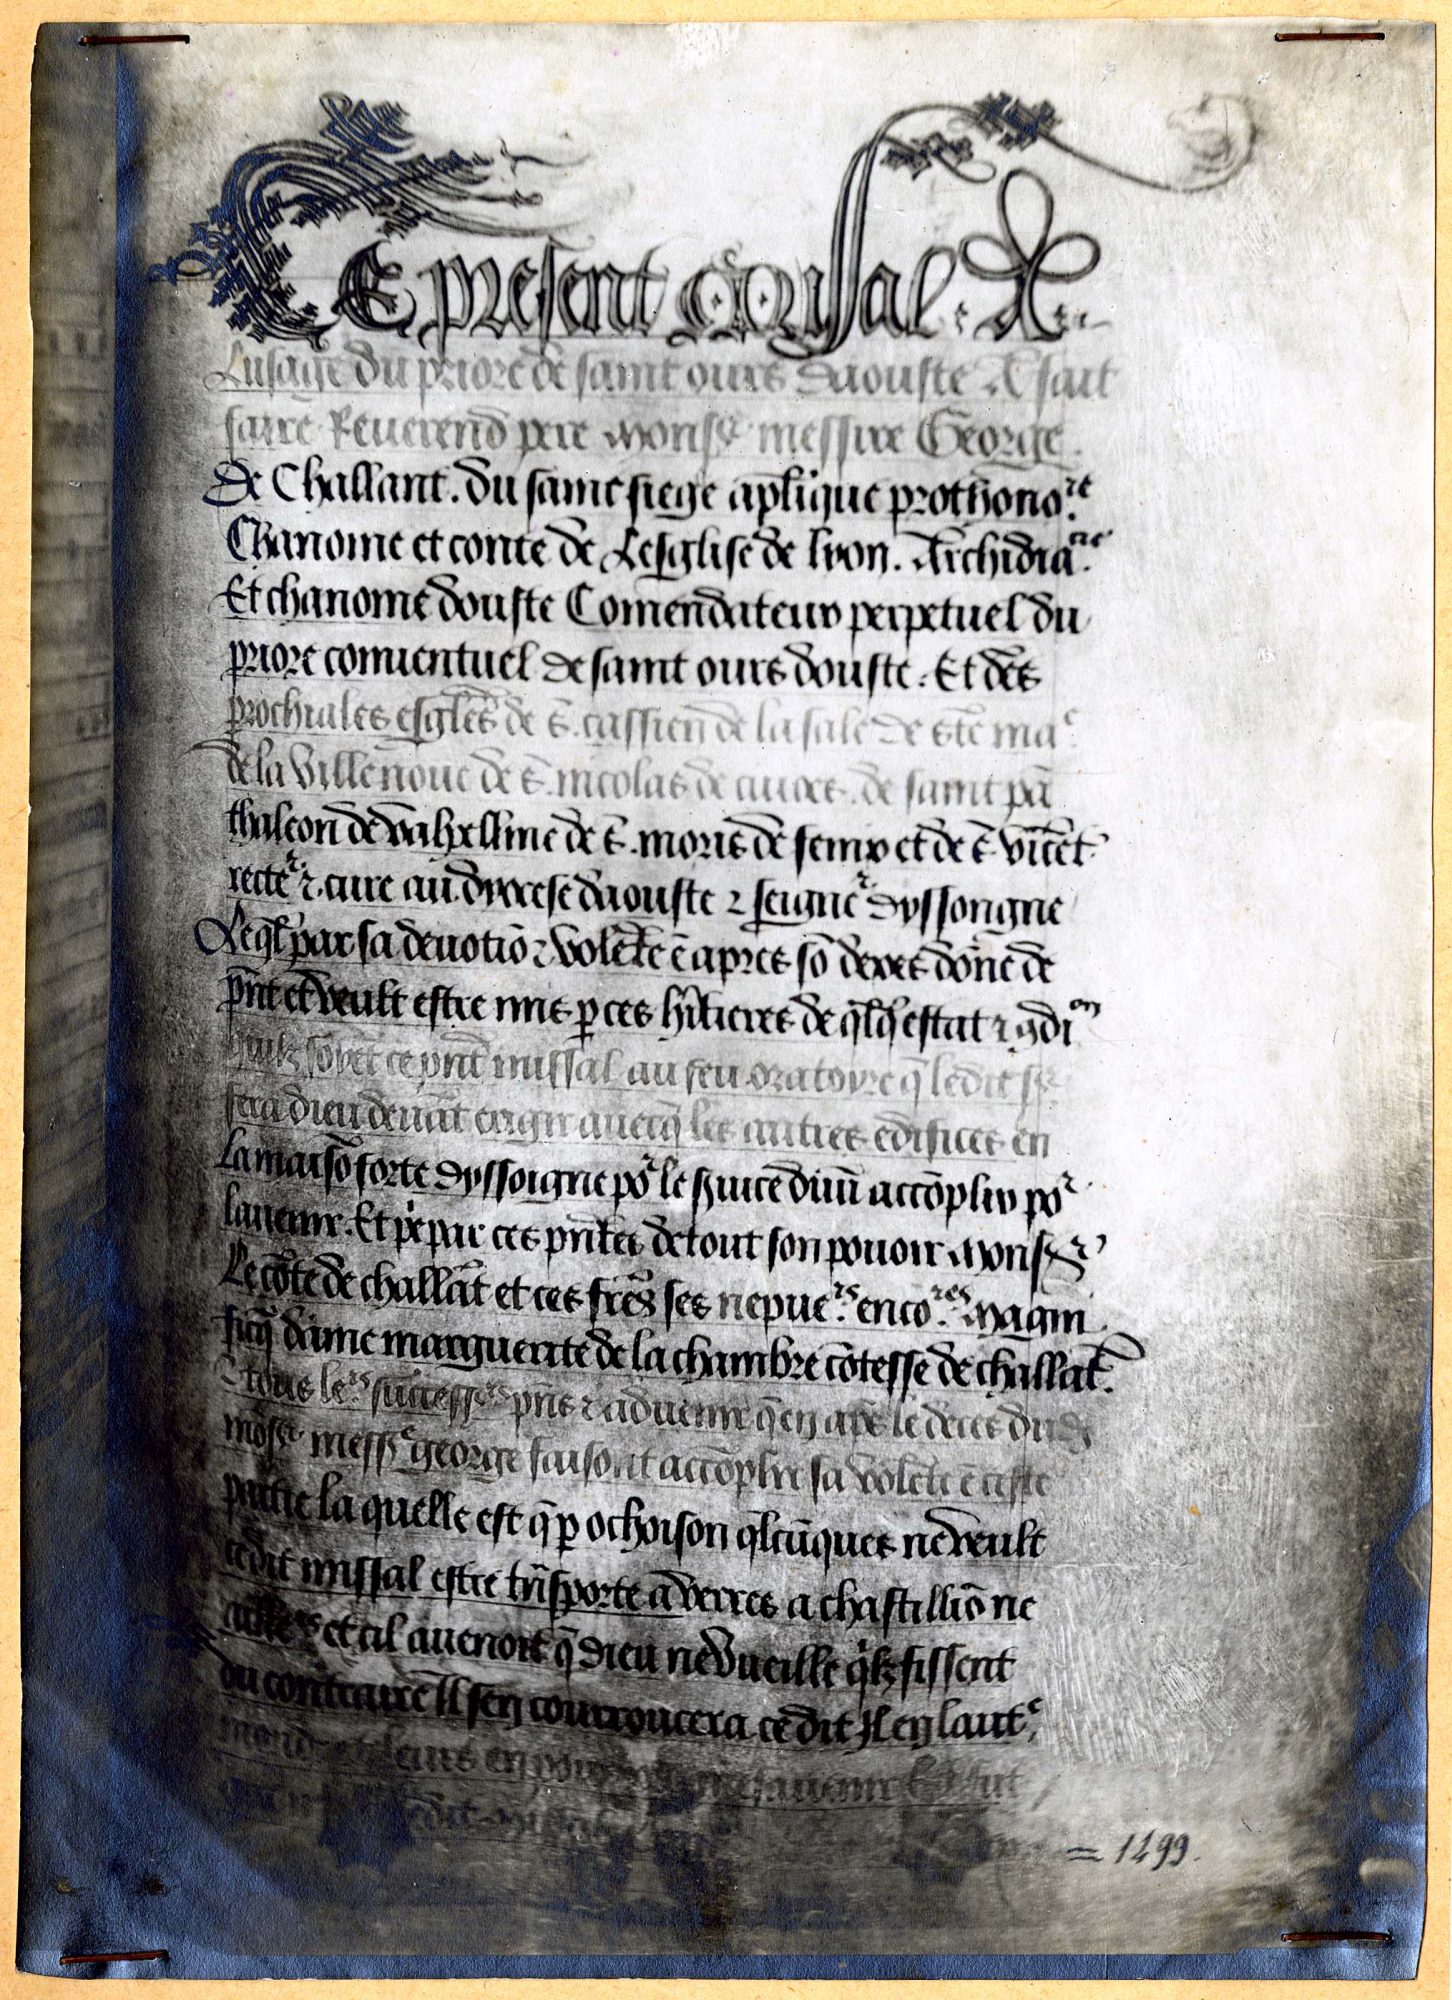 CE present Missal A
Lusaige du priore de saint ours daouste A fait
faire Reuerend pere monsr messire George
De Challant. du saint siege aplique prothonore
Chanoine et conte de Lesglise de lyon. Archidiacre
Et chanoine douste Comendateur perpetuel du
priore conuentuel de saint ours douste. Et des
prochiales esgles de s. cassien de la sale de ste mae
de la villenoue de s. nicolas de ciures. de saint pā
thaleon de valhelline de s. moris de seinx et de s. vicēt
recter z. cure au dyocese daouste z seigner dyssongne
Leql par sa deuotiō z volēte ē apres sō deces dōne de
pnt et veult estre mis p ces hitieres de qlq estat z 9dion
quilz soyēt ce pnt missal au feu oratoyre q ledit sr
fera dieu deuāt erigir auecq les autres edifices en
la maisō forte dyssoigne por le seruice diuī accōplir por
lauenir. Et pe par ces pntes de tout son pouoir monsr
Le cōte de challāt et ces fres ses nepuers encores magni
ficq dame marguerite de la chambre cōtesse de challāt.
z tous lers successrs pns z aduenir qen apres le deces dud
mōsr messe george faisont accōplir sa volēte ē ceste
partie la quelle est q p ochoison qlcūques ne veult
cedit missal estre trāsporte a verres a chastilliō ne
ailleurs et cil auenoit q dieu ne vueille qlz fissent
du contraire Il sen courroucera cedit Il en laute
monde et leurs en
= 1499.